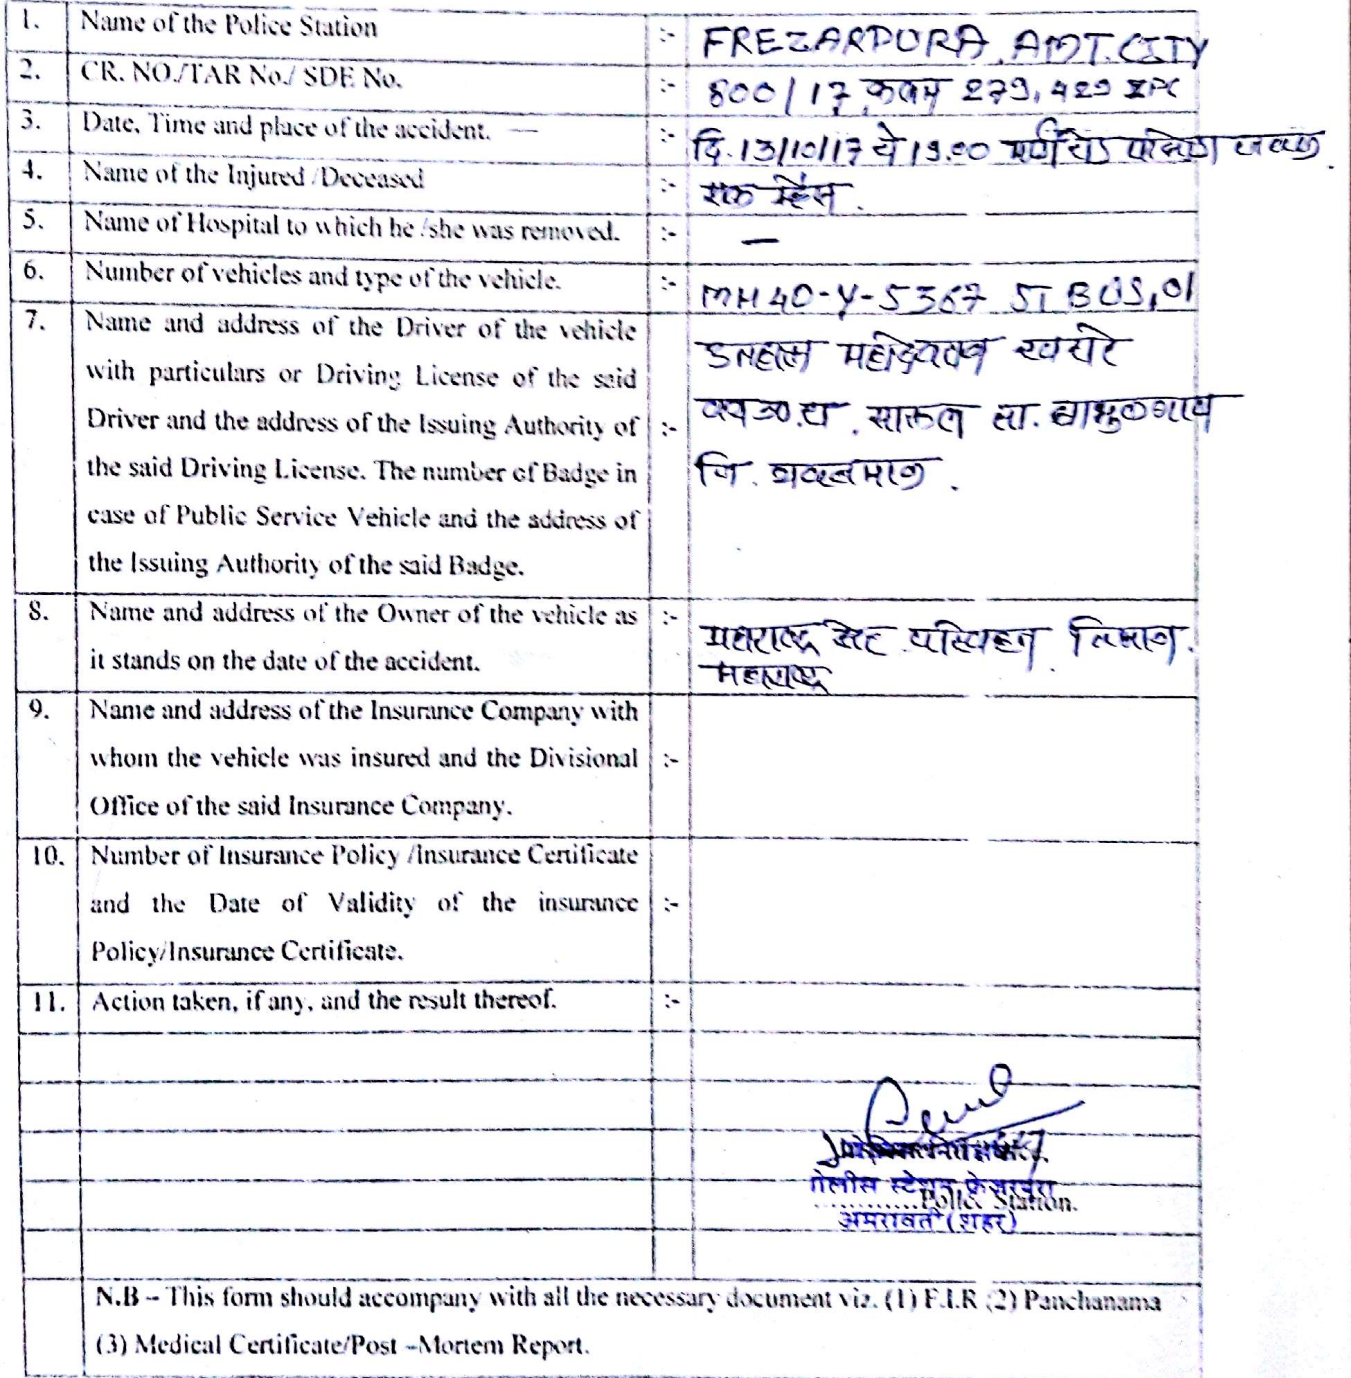 1. Name of the Police Station :- FREZARPURA, AMT. CITY
2. CR. NO./TAR No./ SDE No. :- 800/17 कलम 279, 429 IPC
3. Date, Time and place of the accident. — :- दि. 13/10/17 चे 19.00
4. Name of the Injured /Deceased :- एक म्हैस.
5. Name of Hospital to which he /she was removed. :- —
6. Number of vehicles and type of the vehicle. :- MH 40-Y-5367 ST BUS, 01
7. Name and address of the Driver of the vehicle
with particulars or Driving License of the said
Driver and the address of the Issuing Authority of :-
the said Driving License. The number of Badge in
case of Public Service Vehicle and the address of
the Issuing Authority of the said Badge.
महादेवराव
सा. बाभुळगाव
जि. यवतमाळ.
8. Name and address of the Owner of the vehicle as :-
it stands on the date of the accident.
महाराष्ट्र स्टेट परिवहन विभाग.
महाराष्ट्र
9. Name and address of the Insurance Company with
whom the vehicle was insured and the Divisional :-
Office of the said Insurance Company.
10. Number of Insurance Policy /Insurance Certificate
and the Date of Validity of the insurance :-
Policy/Insurance Certificate.
11. Action taken, if any, and the result thereof. :-
पोलीस स्टेशन फ्रेजरपुरा
............Police Station.
अमरावती (शहर)
N.B – This form should accompany with all the necessary document viz. (1) F.I.R (2) Panchanama
(3) Medical Certificate/Post –Mortem Report.